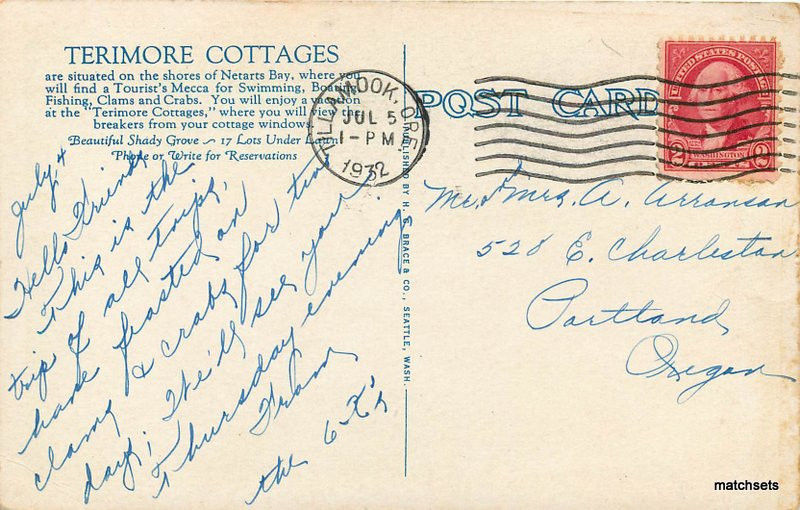 TERIMORE COTTAGES
are situated on the shores of Netarts Bay, where you
will find a Tourist's Mecca for Swimming, Boating
Fishing, Clams and Crabs. You will enjoy a vacation
at the "Terimore Cottages," where you will view the
breakers from your cottage windows.
Beautiful Shady Grove ~ 17 Lots Under Lawn
Phone or Write for Reservations
July 4
Hello Friends
This is the
trip of all trips,
have feasted on
clams & crabs for two
days; We'll see you
Thursday evening.
From
the 6 X's
TILLAMOOK, ORE.
JUL 5
1-PM
1932
PUBLISHED BY H. C. BRACE & CO., SEATTLE, WASH.
POST CARD
UNITED STATES POSTAGE
2 WASHINGTON 2
Mr. & Mrs. A. Arronson
528 E. Charleston
Portland
Oregon
matchsets